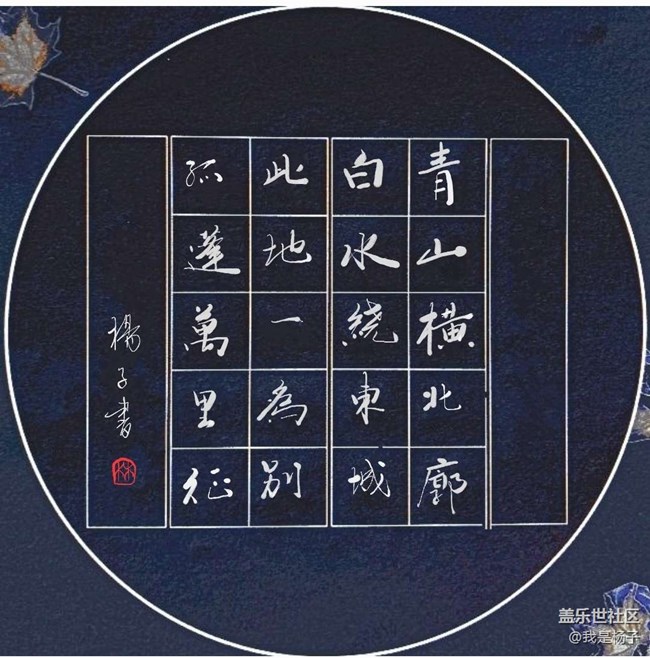 青山橫北廓
白水繞東城
此地一為別
孤蓬萬里征
楊子書
盖乐世社区
@我是杨子